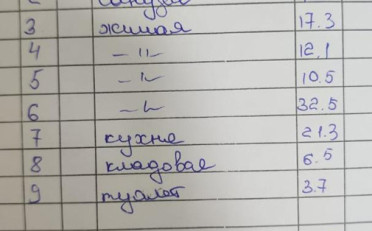 3 жилая 17.3
4 –"– 12.1
5 –"– 10.5
6 –"– 32.5
7 кухня 21.3
8 кладовая 6.5
9 туалет 3.7